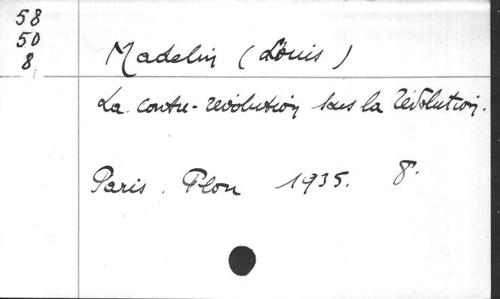 58
50
8
Madelin (Louis)
La contre-révolution sous la révolution.
Paris. Plon 1935. 8°.